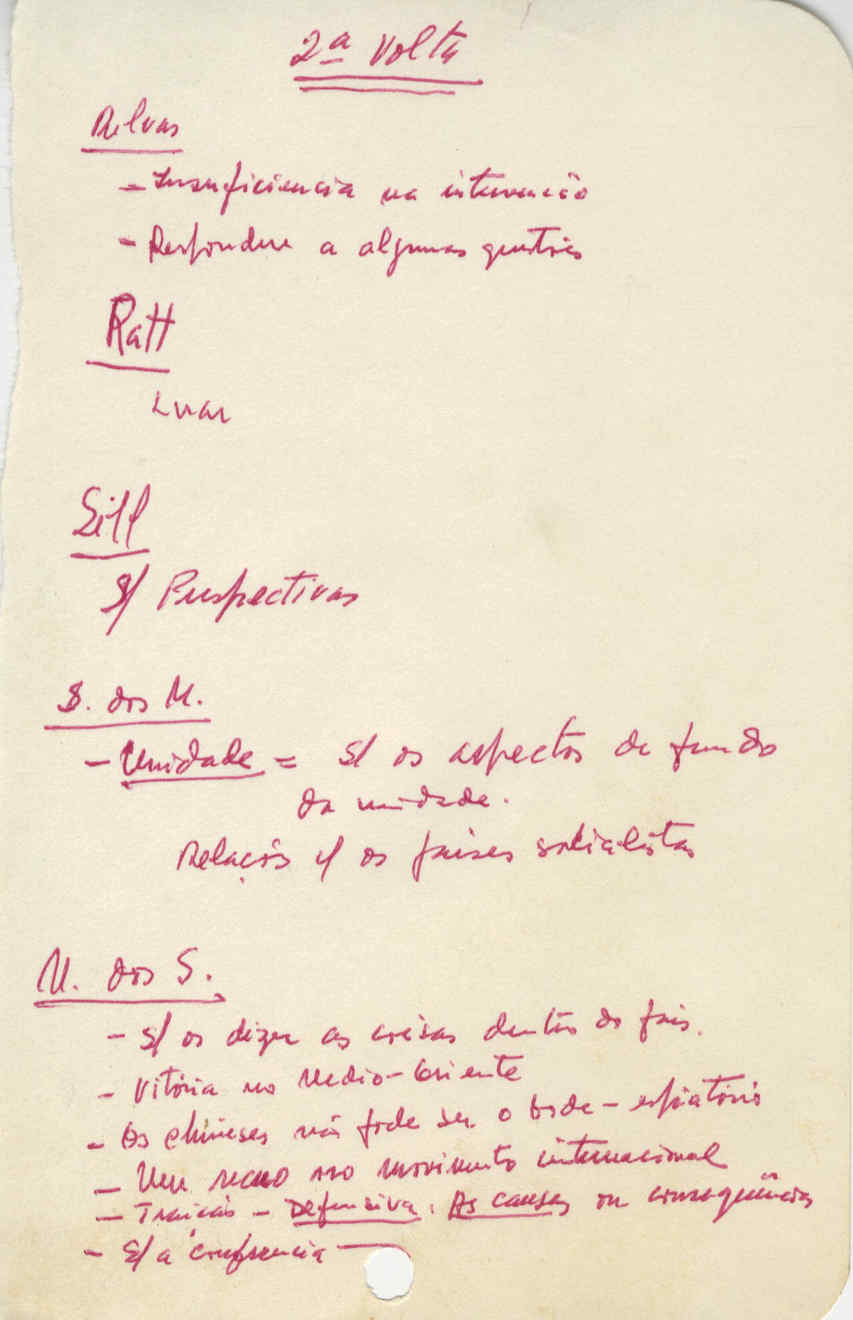 2ª Volta
Relvas
- Insuficiencia na intervenção
- Responder a algumas questões
Ratt
Luar
Gill
S/ Perspectivas
S. dos M.
- Unidade = S/ os aspectos de fundo
da unidade.
Relações c/ os paises socialistas
M. dos S.
- S/ os dizer as coisas dentro do pais.
- Vitória no Medio-Oriente
- Os chineses não pode ser o bode-espiatório
- Um recuo no movimento internacional
- Traição - Defensiva. As causas ou consequências
- S/ a conferencia